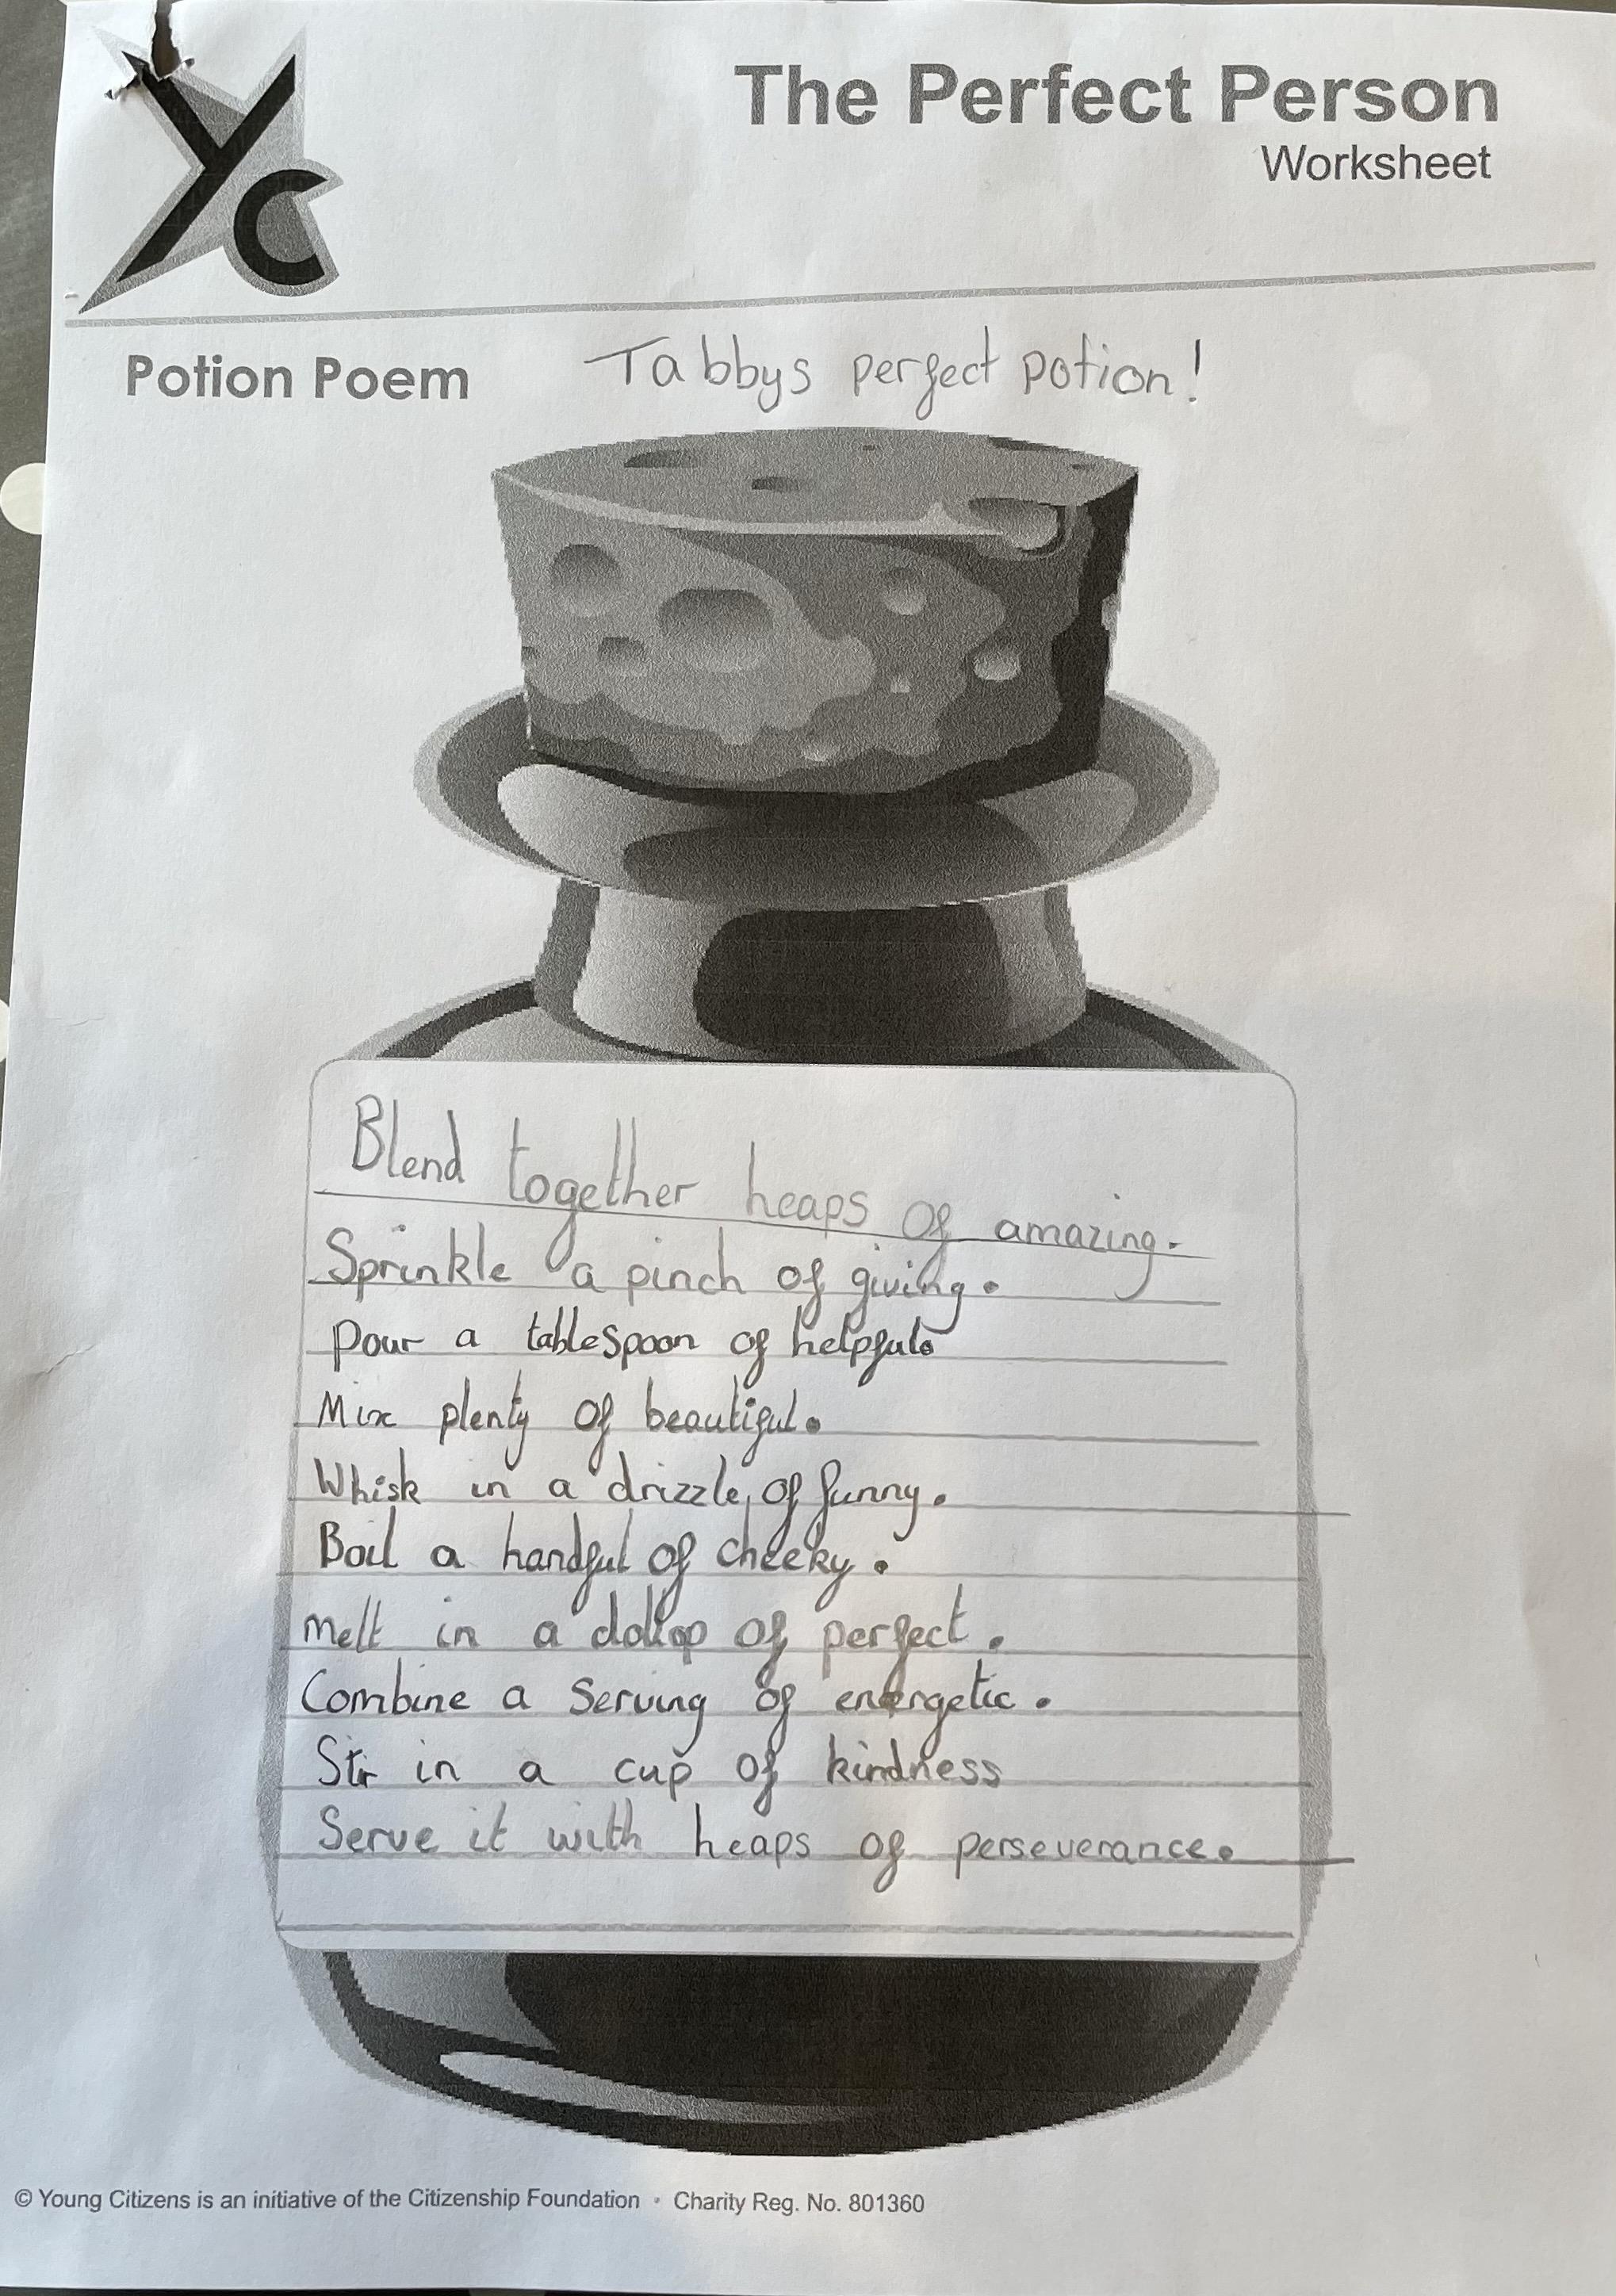 YC
The Perfect Person
Worksheet
Potion Poem Tabbys perfect potion!
Blend together heaps of amazing.
Sprinkle a pinch of giving.
Pour a tablespoon of helpful.
Mix plenty of beautiful.
Whisk in a drizzle of funny.
Boil a handful of cheeky.
Melt in a dollop of perfect.
Combine a serving of energetic.
Stir in a cup of kindness
Serve it with heaps of perseverance.
© Young Citizens is an initiative of the Citizenship Foundation • Charity Reg. No. 801360